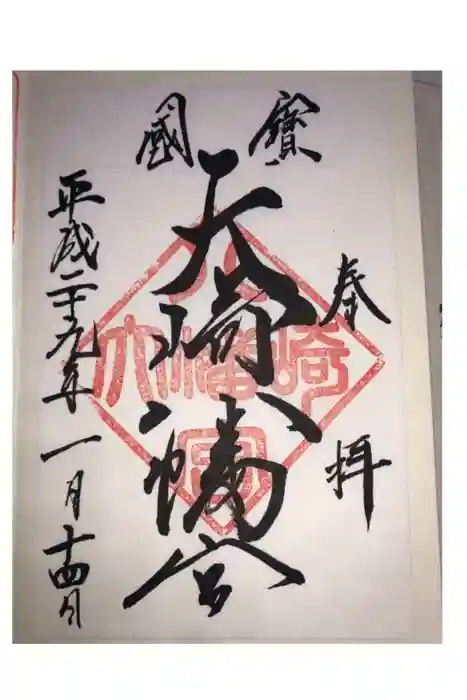 國寶
奉拝
大崎八幡宮
平成二十九年一月十四日
大崎八幡宮